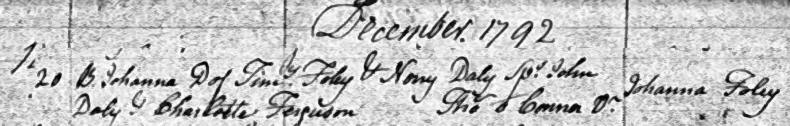 December. 1792
20 B. Johanna D of Timy Foley & Nory Daly Sps John
Daly & Charlotte Ferguson Tho O Connor Johanna Foley